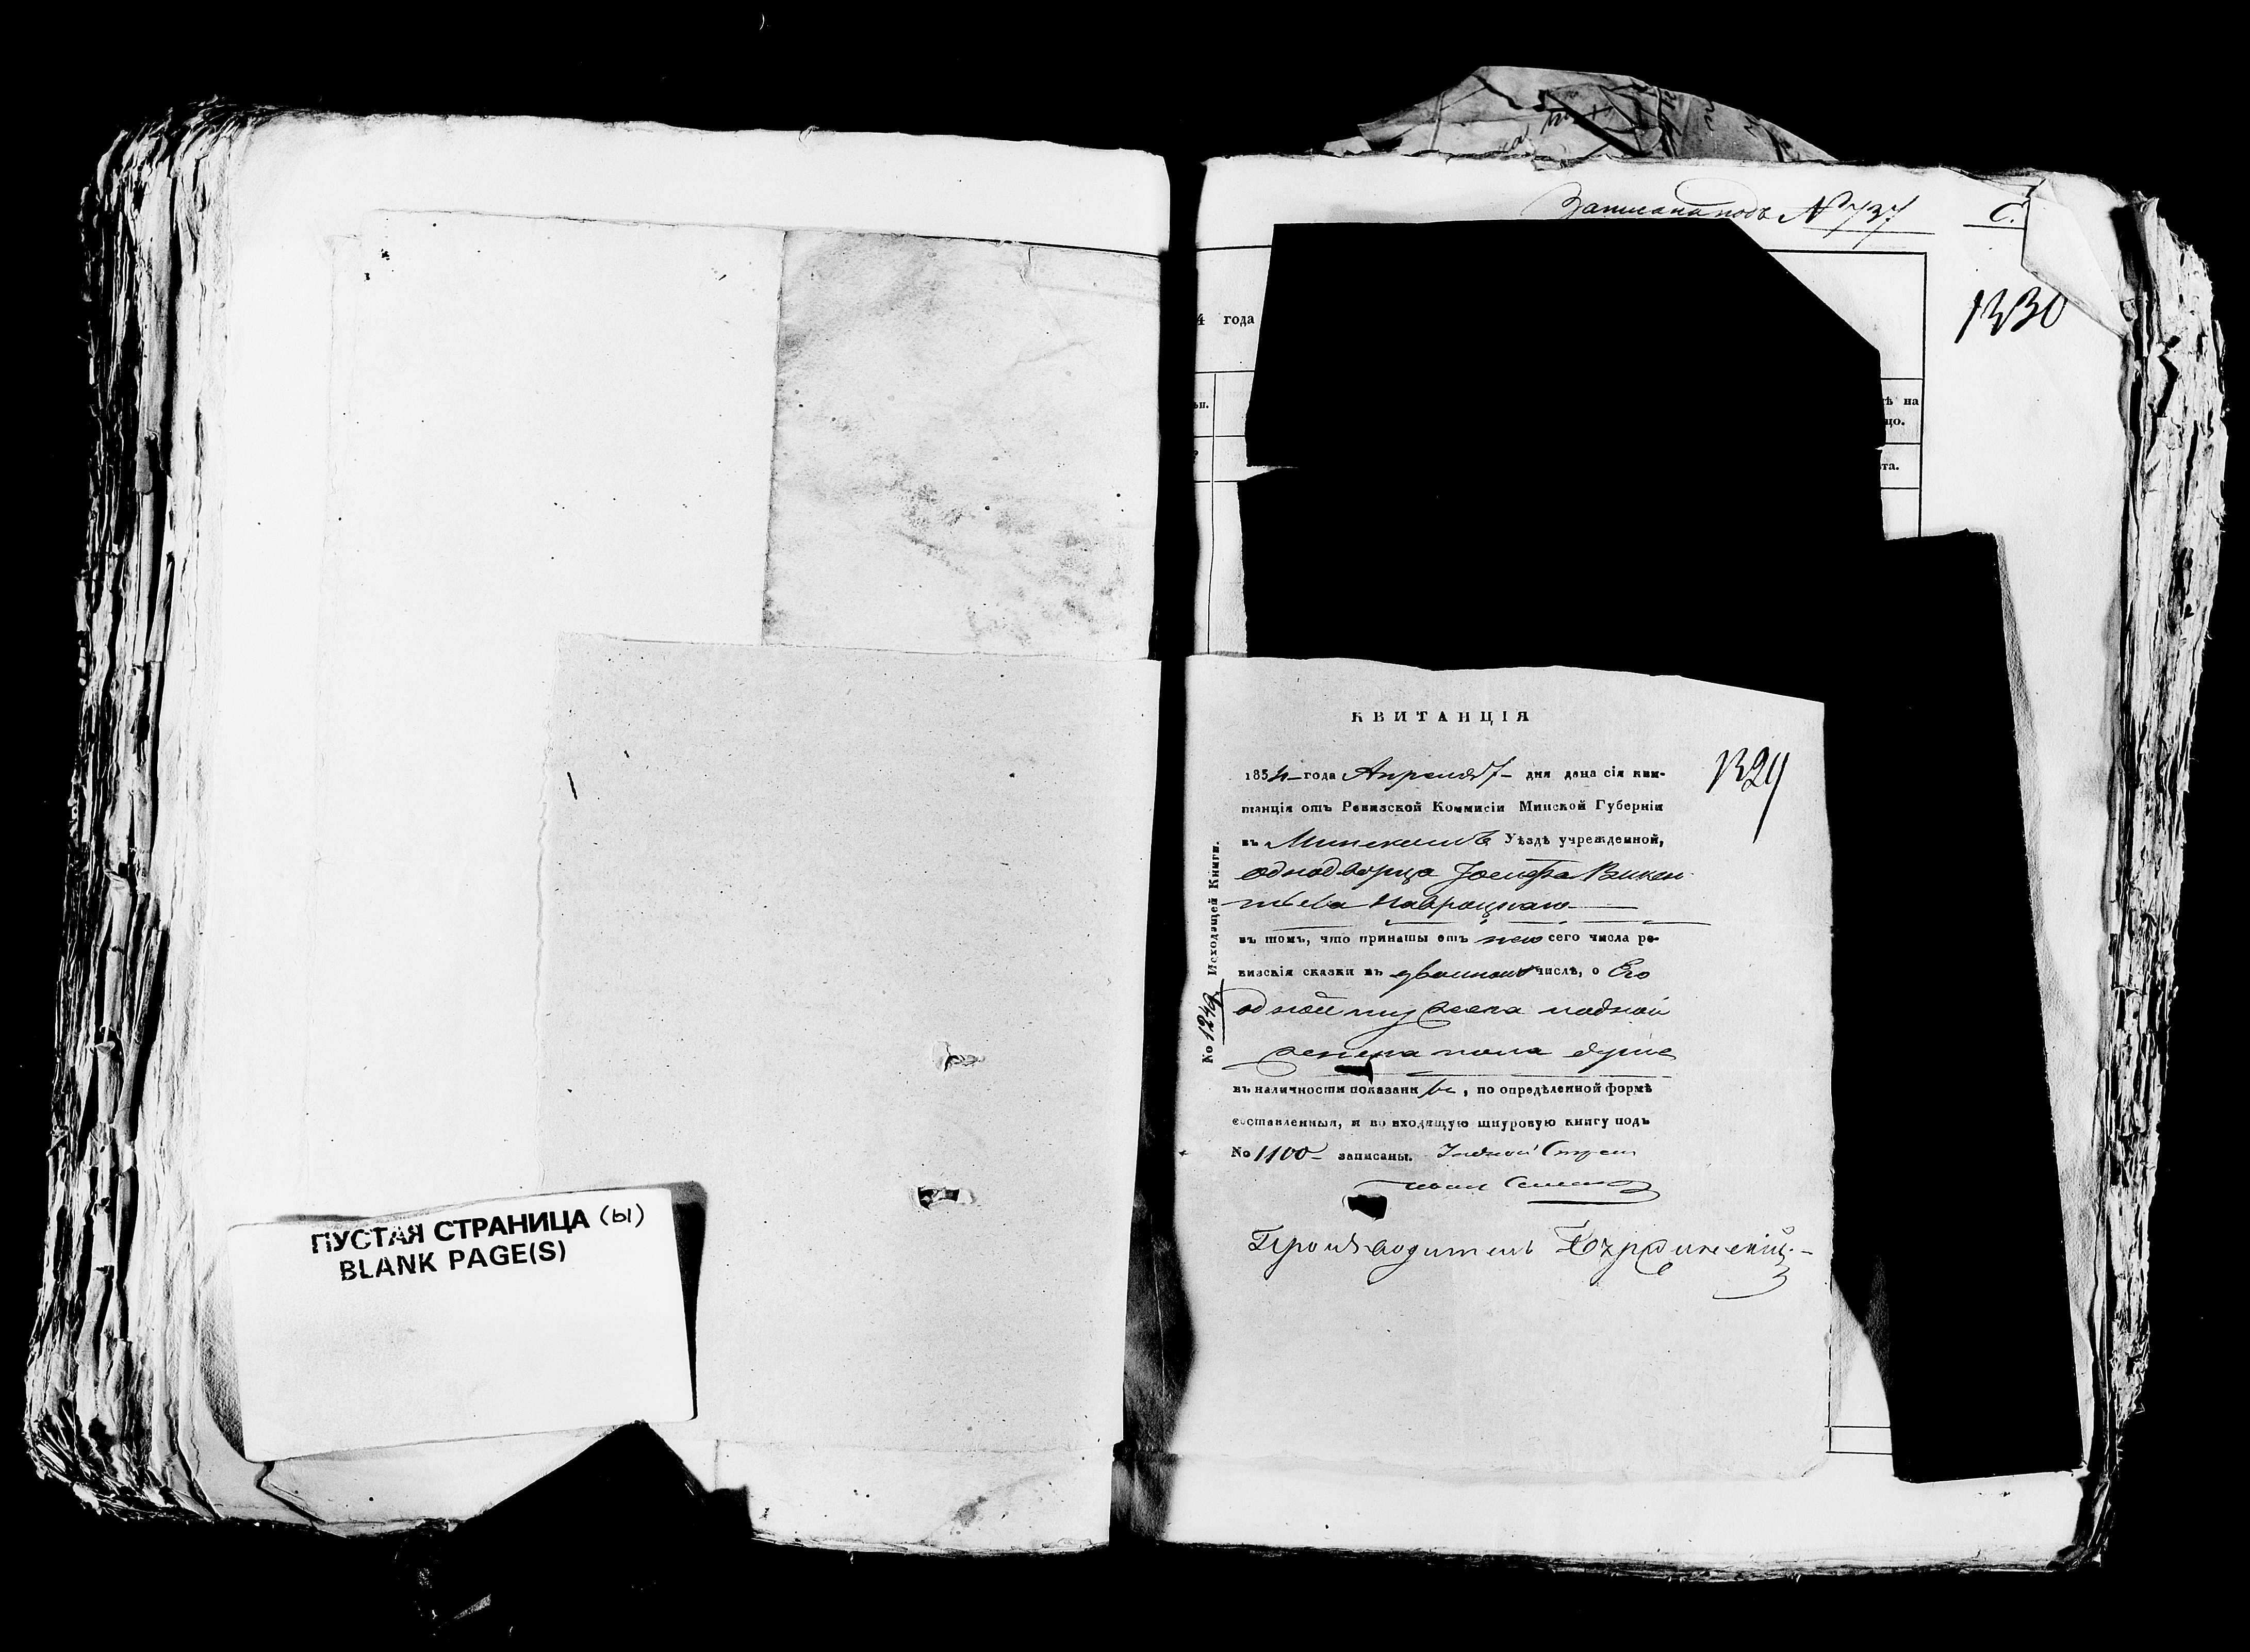 ПУСТАЯ СТРАНИЦА (ы)
BLANK PAGE(S)
Записана подъ № 737
С.
1330
4 года
ьи.
тѣ на
цо.
та.
КВИТАНЦІЯ
1329
1854 года Апреля 7 дня дана сія кви-
танція отъ Ревизской Коммисіи Минской Губерніи
въ Минскомъ Уѣздѣ учрежденной,
однодворца Іосифа Викен-
тьева Навроцкаго
въ томъ, что приняты отъ него сего числа ре-
визскія сказки въ двойномъ числѣ, о Его
одной муж пола и одной
женска пола душе
въ наличности показаны, по опредѣленной формѣ
составленныя, и во входящую шнуровую книгу подъ
No 1100 записаны.
Производитель
No 1249 Исходящей Книги.